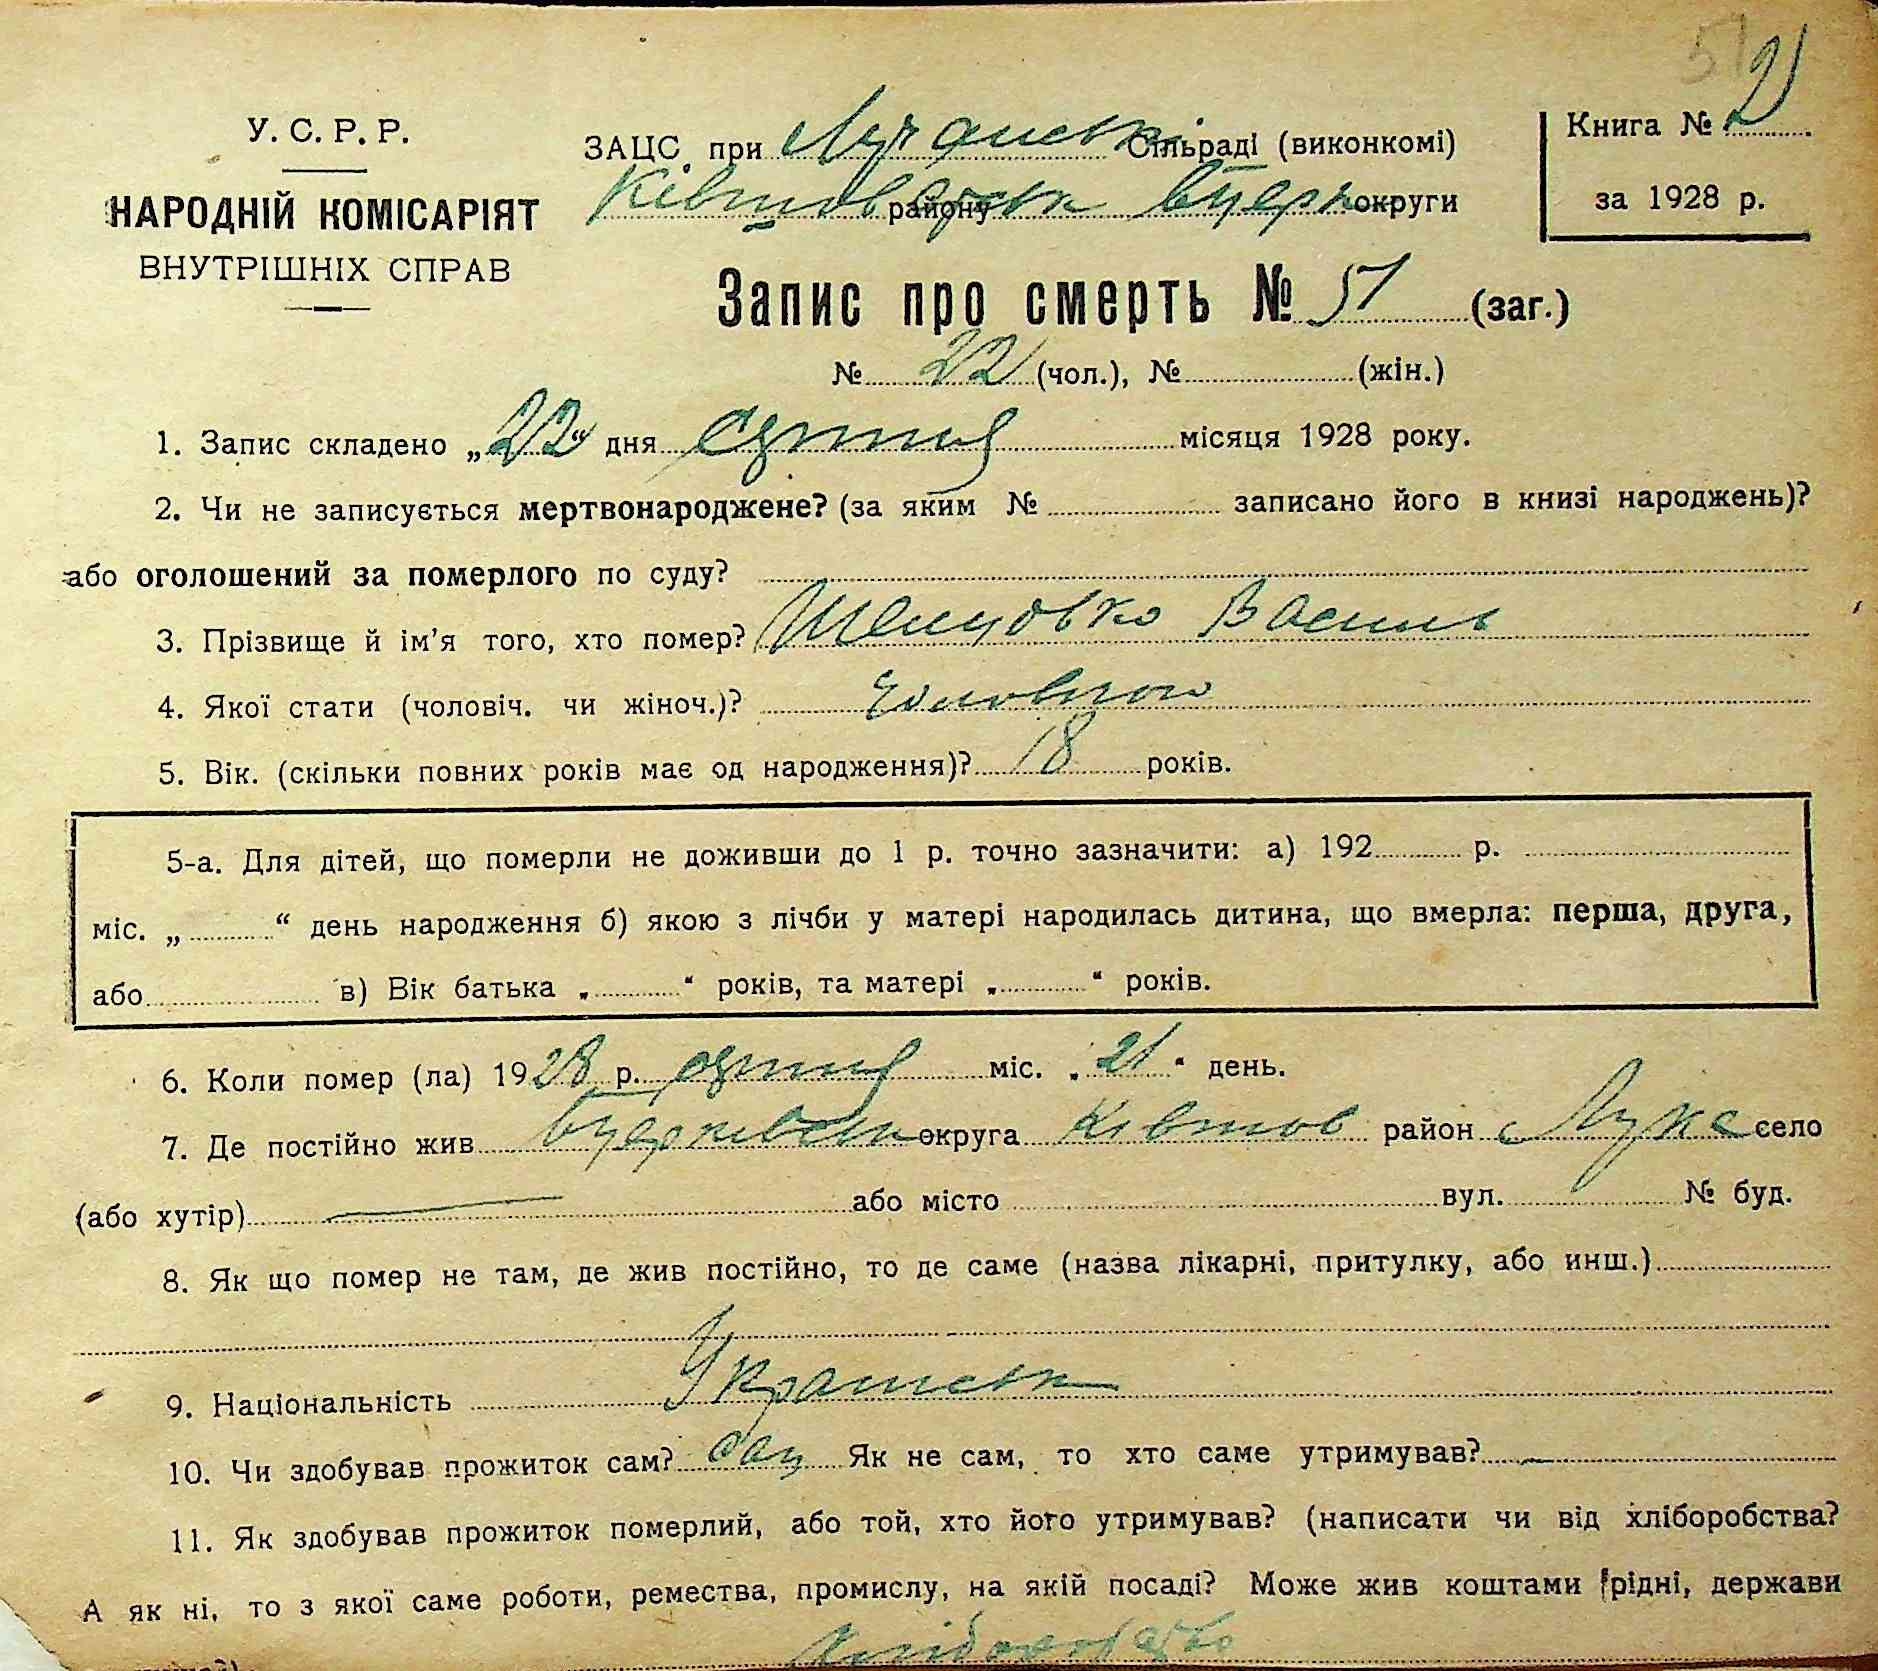 51 2
У. С. Р. Р.
НАРОДНІЙ КОМІСАРІЯТ
ВНУТРІШНІХ СПРАВ
ЗАЦС при Лучанській Сільраді (виконкомі)
району округи
Книга № 2
за 1928 р.
Запис про смерть № 51 (заг.)
№ 22 (чол.), № (жін.)
1. Запис складено „22“ дня серпня місяця 1928 року.
2. Чи не записується мертвонароджене? (за яким № записано його в книзі народжень)?
або оголошений за померлого по суду?
3. Прізвище й ім’я того, хто помер? Василь
4. Якої стати (чоловіч. чи жіноч.)?
5. Вік. (скільки повних років має од народження)? 18 років.
5-а. Для дітей, що померли не доживши до 1 р. точно зазначити: а) 192 р.
міс. „ “ день народження б) якою з лічби у матері народилась дитина, що вмерла: перша, друга,
або в) Вік батька „ “ років, та матері „ “ років.
6. Коли помер (ла) 1928 р. серпня міс. „21“ день.
7. Де постійно жив округа район Лука село
(або хутір) — або місто вул. № буд.
8. Як що помер не там, де жив постійно, то де саме (назва лікарні, притулку, або инш.)
9. Національність
10. Чи здобував прожиток сам? сам Як не сам, то хто саме утримував? —
11. Як здобував прожиток померлий, або той, хто його утримував? (написати чи від хліборобства?
А як ні, то з якої саме роботи, ремества, промислу, на якій посаді? Може жив коштами рідні, держави
хліборобство